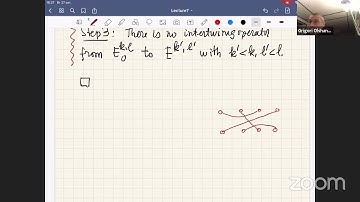 Lecture7
Step 3: There is no intertwining operator
from E₀^{k,l} to E^{k',l'} with k'<k, l'<l.
Grigori Olshan...
zoom